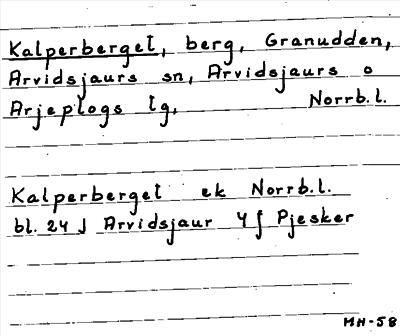 Kalperberget, berg, Granudden,
Arvidsjaurs sn, Arvidsjaurs o
Arjeplogs lg, Norrb.l.
Kalperberget ek Norrb.l.
bl. 24 J Arvidsjaur 4 f Pjesker
MH-58